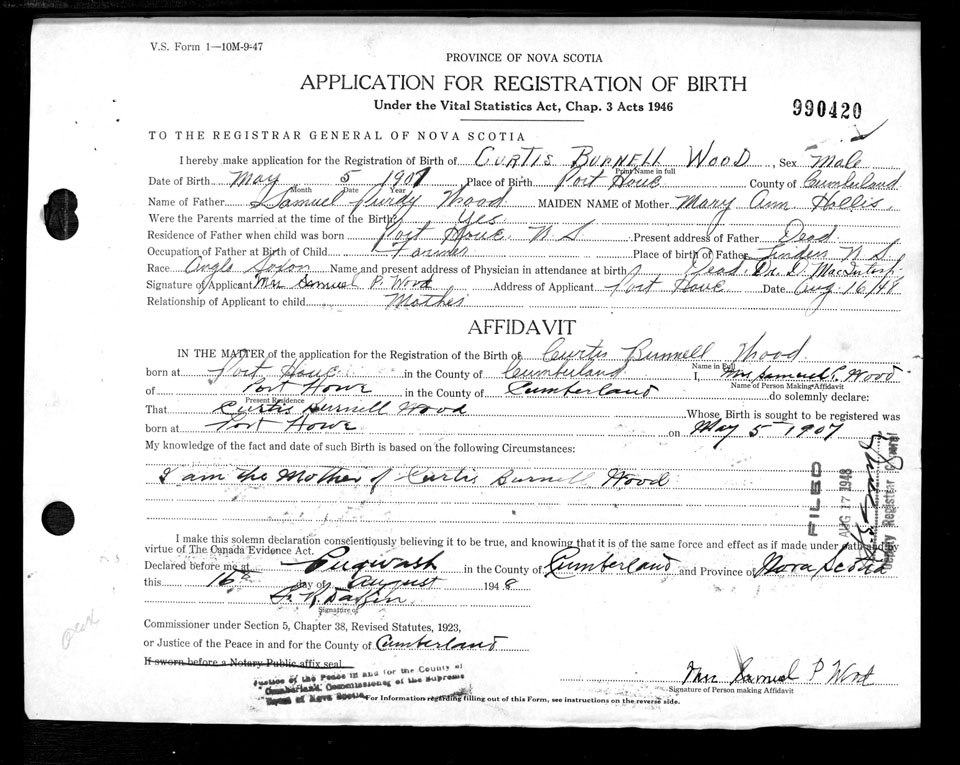 V.S. Form 1—10M-9-47
PROVINCE OF NOVA SCOTIA
APPLICATION FOR REGISTRATION OF BIRTH
Under the Vital Statistics Act, Chap. 3 Acts 1946
990420
TO THE REGISTRAR GENERAL OF NOVA SCOTIA
I hereby make application for the Registration of Birth of CURTIS BURNELL WOOD, Sex Male
Print Name in full
Date of Birth May 5 1907 Place of Birth Port Howe County of Cumberland
Month Date Year
Name of Father Samuel Purdy Wood MAIDEN NAME of Mother Mary Ann Hollis.
Were the Parents married at the time of the Birth? Yes
Residence of Father when child was born Port Howe. N S Present address of Father Dead
Occupation of Father at Birth of Child Farmer Place of birth of Father Linden N S
Race Anglo Saxon Name and present address of Physician in attendance at birth Dead. Dr. D.
Signature of Applicant Mrs Samuel P. Wood Address of Applicant Port Howe Date Aug 16/48
Relationship of Applicant to child Mother
AFFIDAVIT
IN THE MATTER of the application for the Registration of the Birth of Curtis Burnell Wood
Name in Full
born at Port Howe in the County of Cumberland I, Mrs Samuel P. Wood
Name of Person Making Affidavit
of Port Howe in the County of Cumberland do solemnly declare:
Present Residence
That Curtis Burnell Wood Whose Birth is sought to be registered was
born at Port Howe on May 5 1907
My knowledge of the fact and date of such Birth is based on the following Circumstances:
I am the Mother of Curtis Burnell Wood
FILED
AUG 17 1948
Deputy Registrar General
I make this solemn declaration conscientiously believing it to be true, and knowing that it is of the same force and effect as if made under oath and by
virtue of The Canada Evidence Act.
Declared before me at Pugwash in the County of Cumberland and Province of Nova Scotia
this 16th day of August 1948
Signature of
Commissioner under Section 5, Chapter 38, Revised Statutes, 1923,
or Justice of the Peace in and for the County of Cumberland
If sworn before a Notary Public affix seal
Justice of the Peace in and for the County of
Cumberland. Commissioner of the Supreme
Court of Nova Scotia
Mrs Samuel P Wood
Signature of Person making Affidavit
For Information regarding filling out of this Form, see instructions on the reverse side.